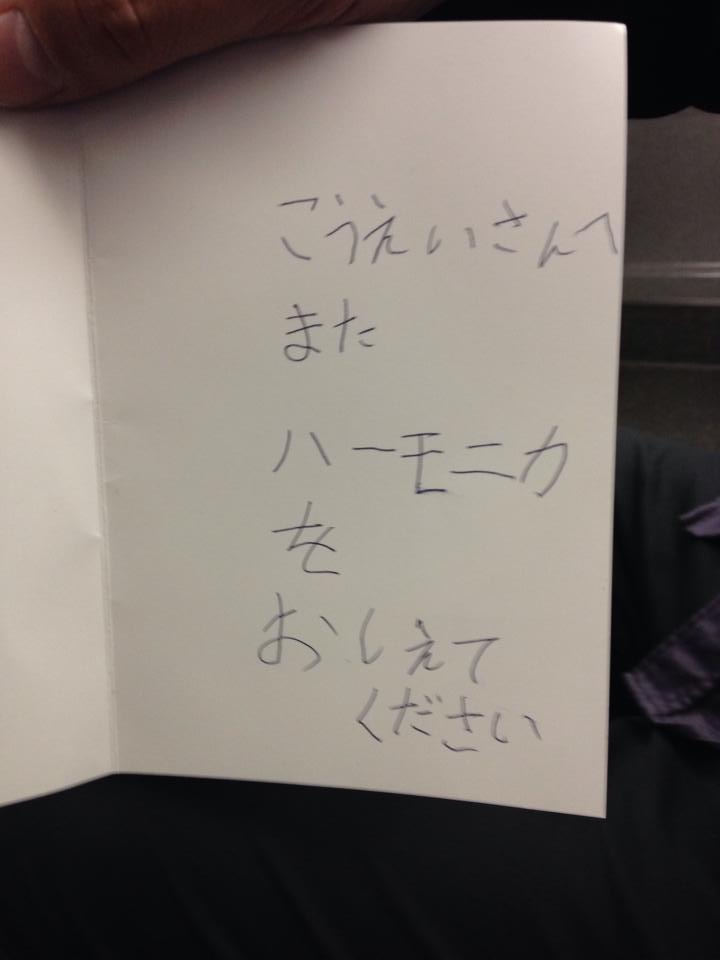 ごうえいさんへ
また
ハーモニカ
を
おしえて
ください